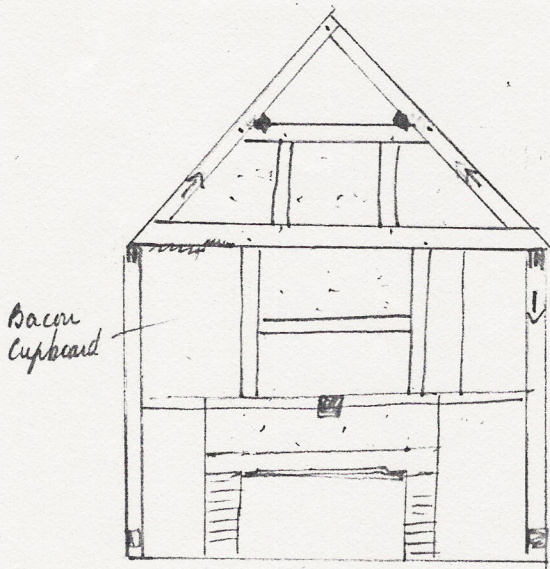 Bacon
Cupboard